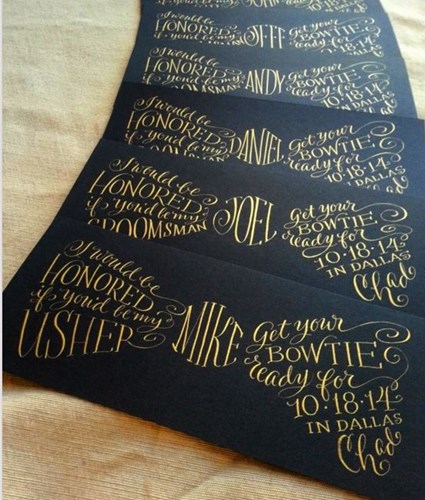 I would be
HONORED
JEFF
Get your
BOWTIE
ready for
I would be
HONORED
if you'd be my
ANDY
Get your
BOWTIE
ready for
I would be
HONORED
if you'd be my
DANIEL
Get your
BOWTIE
ready for
10·18·14
I would be
HONORED
if you'd be my
GROOMSMAN
JOEL
Get your
BOWTIE
ready for
10·18·14
IN DALLAS
Chad
I would be
HONORED
if you'd be my
USHER
MIKE
Get your
BOWTIE
ready for
10·18·14
IN DALLAS
Chad